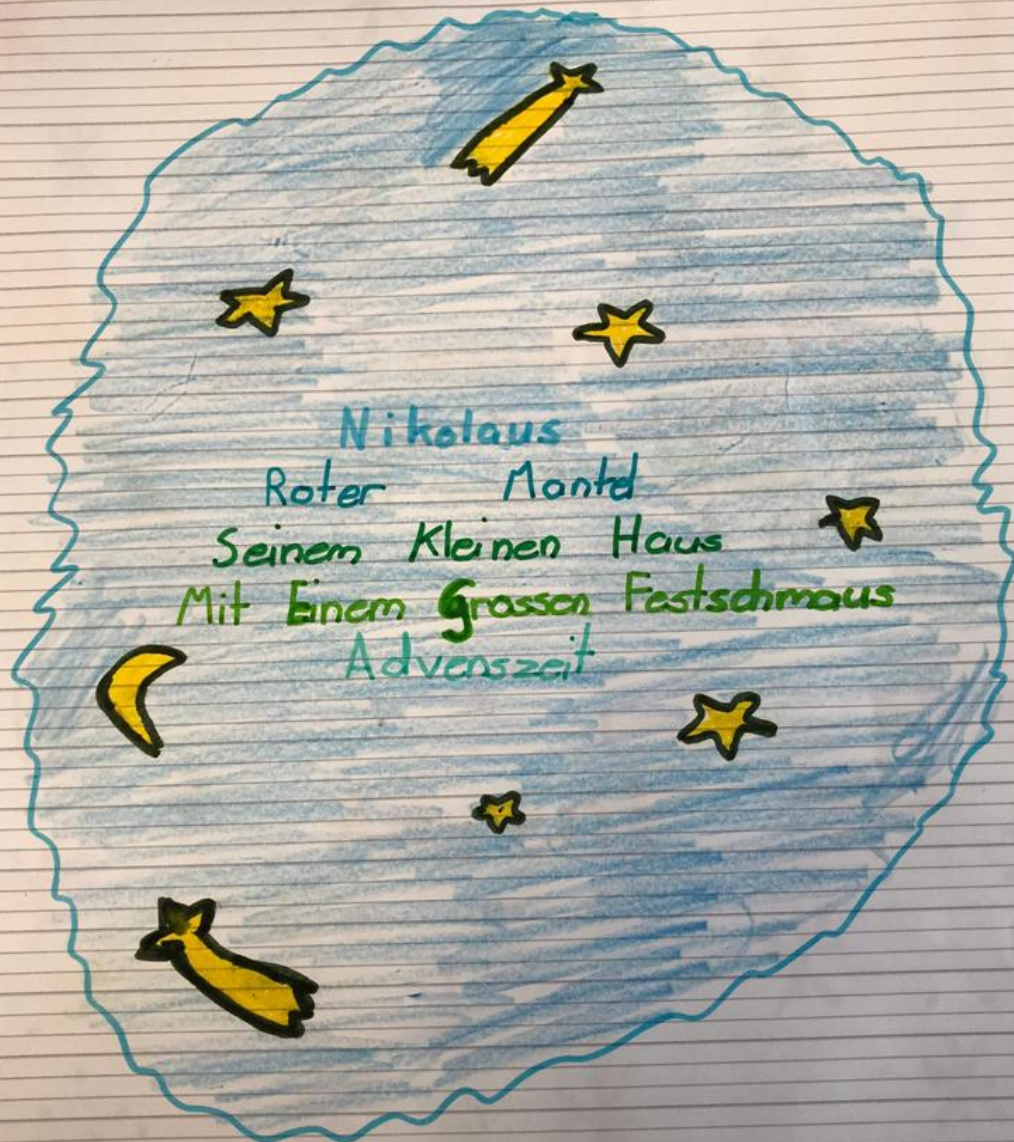 Nikolaus
Roter Mantel
Seinem Kleinen Haus
Mit Einem Grossen Festschmaus
Advenszeit